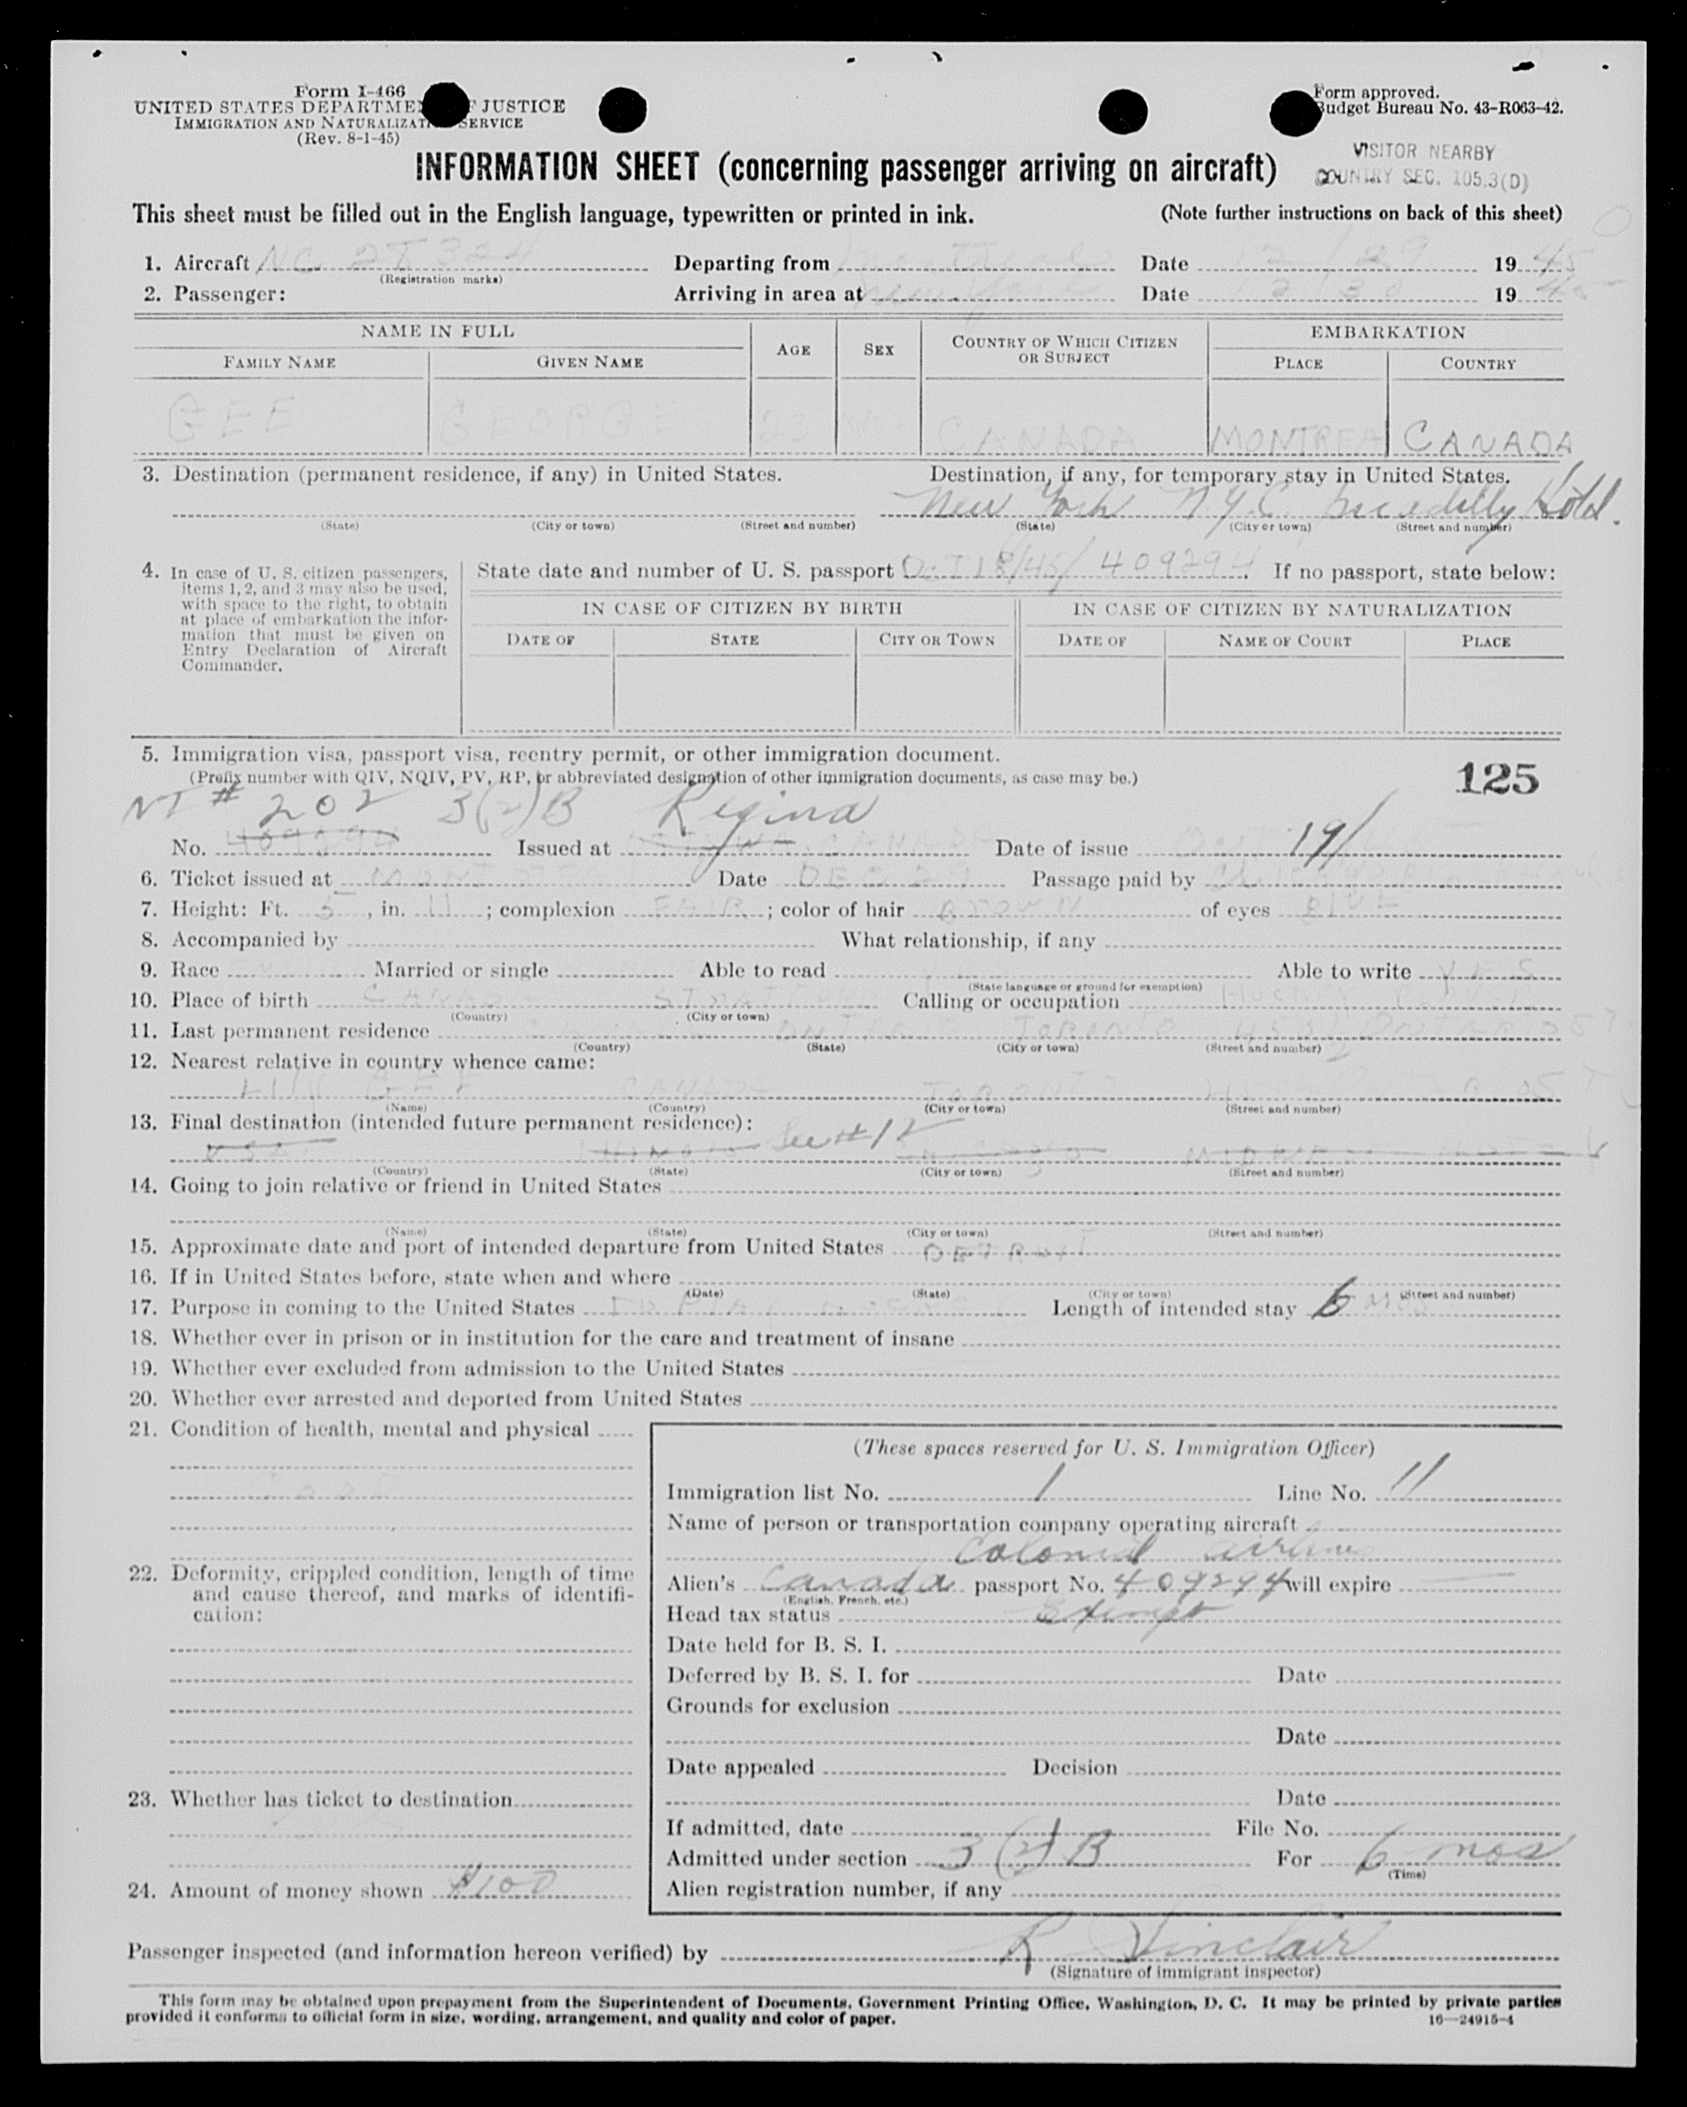 Form I-466
UNITED STATES DEPARTME JUSTICE
IMMIGRATION AND NATURALIZATI SERVICE
(Rev. 8-1-45)
Form approved.
Budget Bureau No. 43-R063-42.
VISITOR NEARBY
COUNTRY SEC. 105.3(D)
INFORMATION SHEET (concerning passenger arriving on aircraft)
This sheet must be filled out in the English language, typewritten or printed in ink. (Note further instructions on back of this sheet)
1. Aircraft NC 28324 Departing from Montreal Date 12/29 1945
(Registration marks)
2. Passenger: Arriving in area at New York Date 12/30 1945
NAME IN FULL AGE SEX COUNTRY OF WHICH CITIZEN OR SUBJECT EMBARKATION
FAMILY NAME GIVEN NAME PLACE COUNTRY
GEE GEORGE 23 CANADA MONTREAL CANADA
3. Destination (permanent residence, if any) in United States. Destination, if any, for temporary stay in United States.
New York N.Y.C. Piccadilly Hotel.
(State) (City or town) (Street and number) (State) (City or town) (Street and number)
4. In case of U. S. citizen passengers, items 1, 2, and 3 may also be used, with space to the right, to obtain at place of embarkation the information that must be given on Entry Declaration of Aircraft Commander.
State date and number of U. S. passport Oct 18/45/ 409294. If no passport, state below:
IN CASE OF CITIZEN BY BIRTH IN CASE OF CITIZEN BY NATURALIZATION
DATE OF STATE CITY OR TOWN DATE OF NAME OF COURT PLACE
5. Immigration visa, passport visa, reentry permit, or other immigration document.
(Prefix number with QIV, NQIV, PV, RP, or abbreviated designation of other immigration documents, as case may be.)
125
NT # 202 3(2)B Regina
No. 409294 Issued at CANADA Date of issue 19/
6. Ticket issued at MONTREAL Date DEC 29 Passage paid by
7. Height: Ft. 5, in. 11; complexion FAIR; color of hair BROWN of eyes BLUE
8. Accompanied by What relationship, if any
9. Race Married or single Able to read Able to write YES
(State language or ground for exemption)
10. Place of birth CANADA STRATFORD Calling or occupation HOCKEY PLAYER
(Country) (City or town)
11. Last permanent residence ONT. TORONTO
(Country) (State) (City or town) (Street and number)
12. Nearest relative in country whence came:
GEE CANADA TORONTO
(Name) (Country) (City or town) (Street and number)
13. Final destination (intended future permanent residence): See #12
USA ILLINOIS CHICAGO
(Country) (State) (City or town) (Street and number)
14. Going to join relative or friend in United States
(Name) (State) (City or town) (Street and number)
15. Approximate date and port of intended departure from United States DETROIT
16. If in United States before, state when and where
(Date) (State) (City or town) (Street and number)
17. Purpose in coming to the United States TO PLAY HOCKEY Length of intended stay 6 MOS
18. Whether ever in prison or in institution for the care and treatment of insane
19. Whether ever excluded from admission to the United States
20. Whether ever arrested and deported from United States
21. Condition of health, mental and physical
GOOD
22. Deformity, crippled condition, length of time and cause thereof, and marks of identification:
23. Whether has ticket to destination
24. Amount of money shown $100
(These spaces reserved for U. S. Immigration Officer)
Immigration list No. 1 Line No. 11
Name of person or transportation company operating aircraft
Colonial Airlines
Alien's Canada passport No. 409294 will expire
(English, French, etc.)
Head tax status Exempt
Date held for B. S. I.
Deferred by B. S. I. for Date
Grounds for exclusion
Date
Date appealed Decision
Date
If admitted, date File No.
Admitted under section 3(2)B For 6 mos
(Time)
Alien registration number, if any
Passenger inspected (and information hereon verified) by R Sinclair
(Signature of immigrant inspector)
This form may be obtained upon prepayment from the Superintendent of Documents, Government Printing Office, Washington, D. C. It may be printed by private parties
provided it conforms to official form in size, wording, arrangement, and quality and color of paper. 16—24915-4